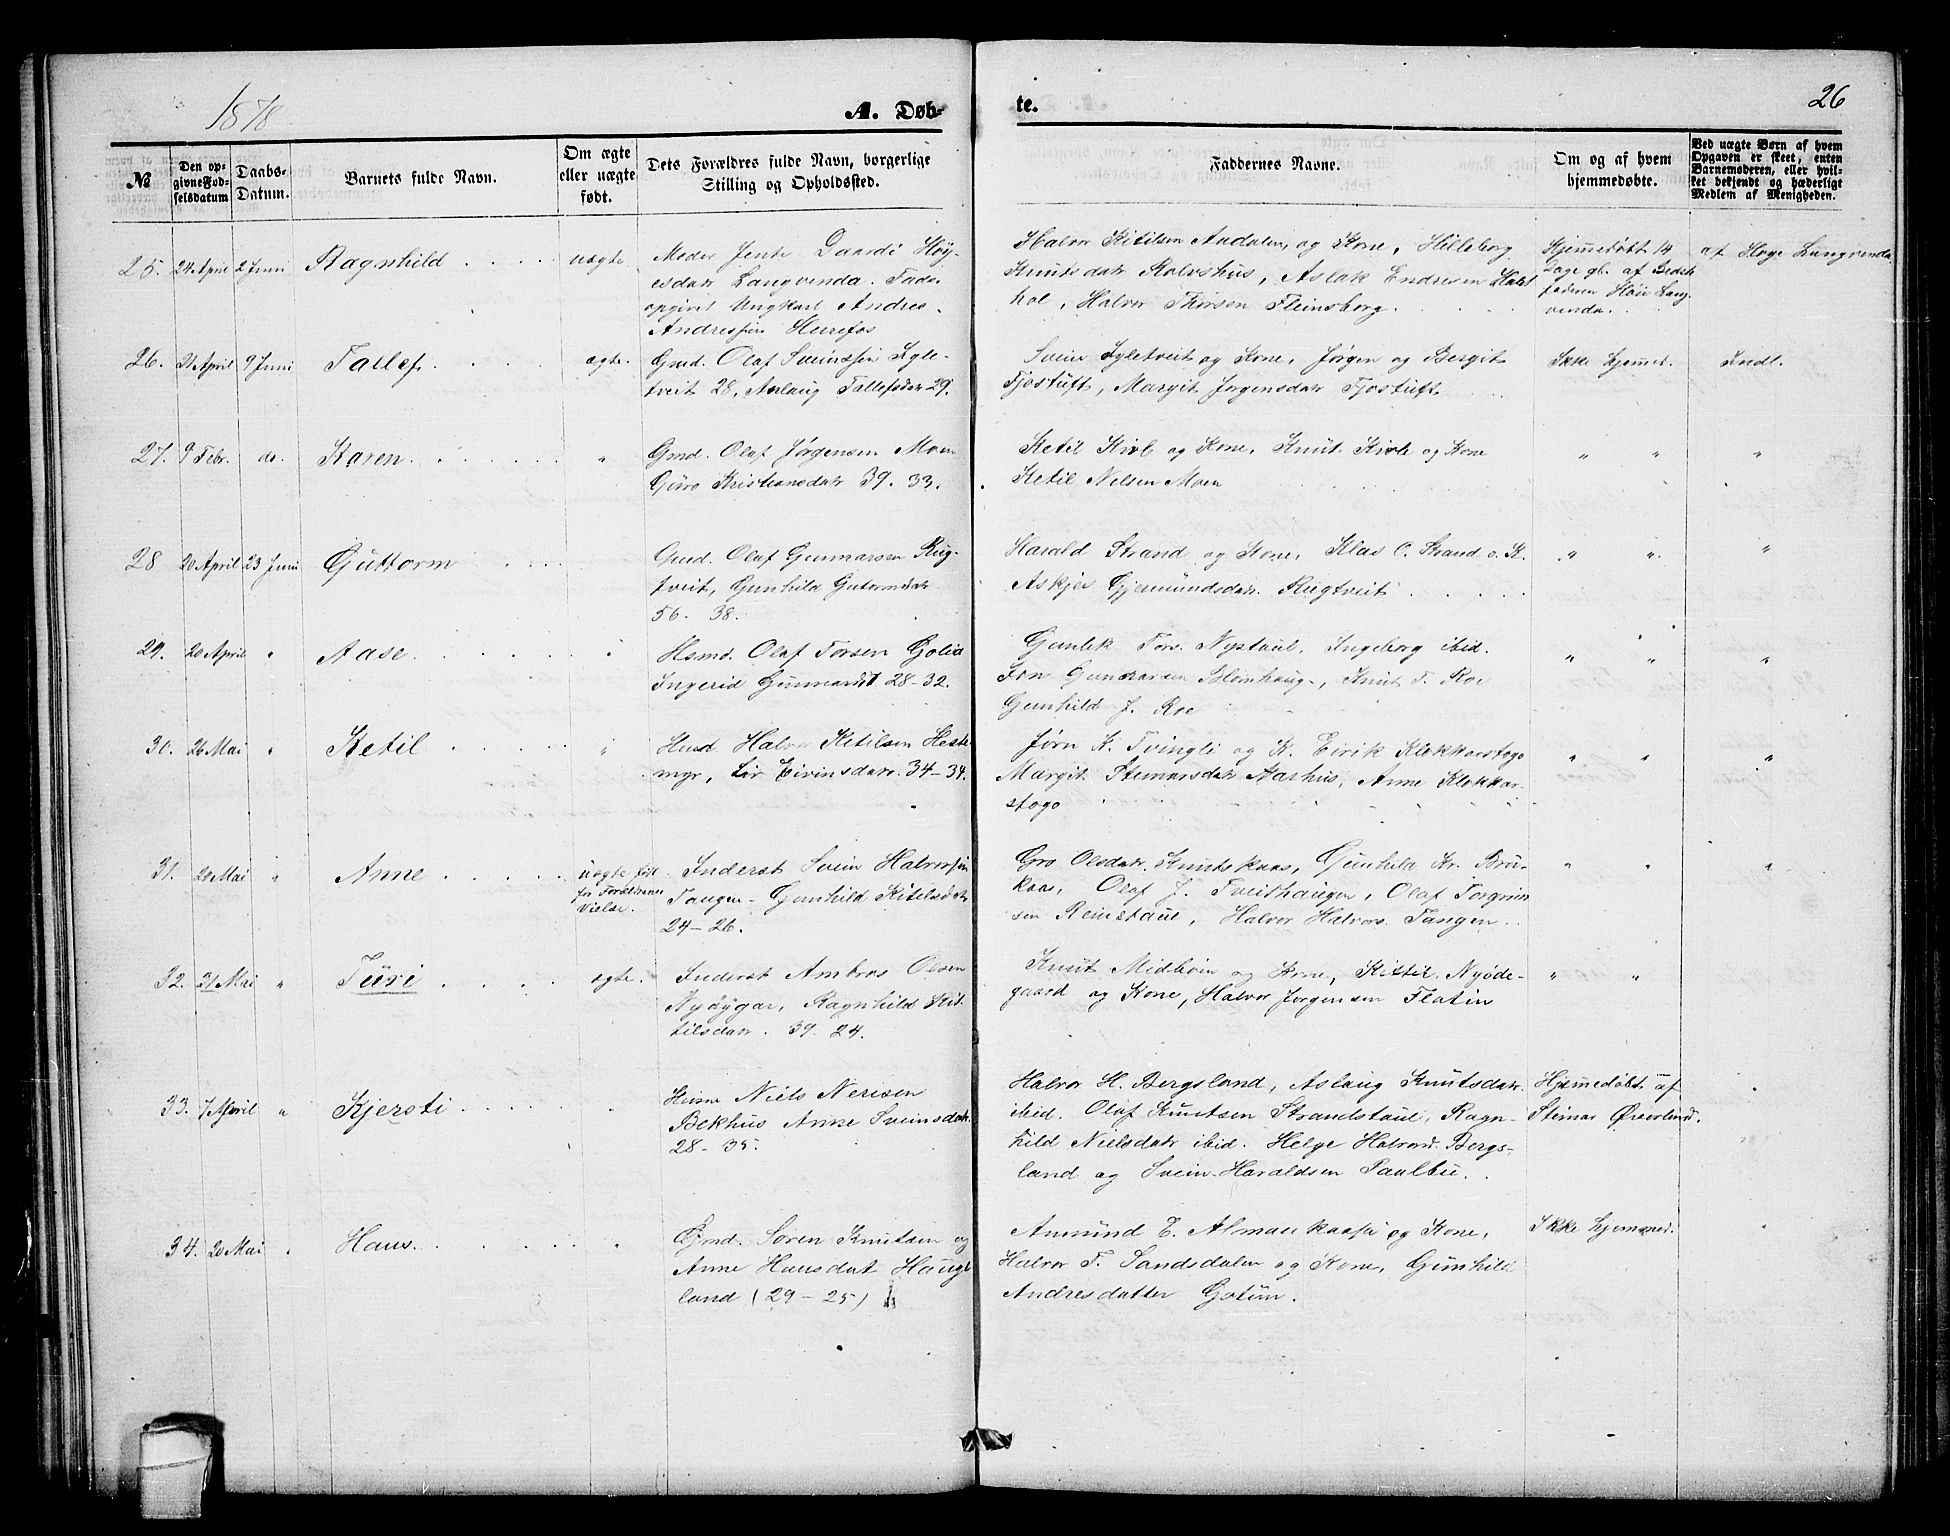 1878
A. Døb-
te.
26
№
Den op-
givne Fød-
selsdatum
Daabs-
Datum.
Barnets fulde Navn.
Om ægte
eller uægte
født.
Dets Forældres fulde Navn, borgerlige
Stilling og Opholdssted.
Faddernes Navne.
Om og af hvem
hjemmedøbte.
Ved uægte Børn af hvem
Opgaven er skeet, enten
Barnemoderen, eller hvil-
ket bekjendt og hæderligt
Medlem af Menigheden.
25. 24 April 2 Juni Ragnhild uægte
Moder Jente Daardi Høy-
esdatr Langvenda. Fader
opgivet Ungkarl Andres
Andressøn Hurefos
Halvor Kitilsen Aadalen, og Kone, Hilleborg
Knutsdatr Rolvshus, Aslak Endresen
Halvor Thorsen Fleinsborg
Hjemmedøbt 14
Dage gl. af Bedste
faderen Høie Lang-
venda.
af Høge Langvenda
26. 21 April 9 Juni Tallef ægte.
Gmd. Olaf Sveinssøn Lyle-
tveit 28, Aslaug Tallefsdatr 29.
Svein Lyletveit og Kone, Jørgen og Bergit
Tjostuft, Margit Jørgensdatr Tjostuft
Ikke hjemmed. Indl.
27. 9 Febr. do. Karen "
Gmd. Olaf Jørgensen Moen
Guro Kristiansdatr 39. 33.
Ketil Kivle og Kone, Knut Kivle og Kone
Ketil Nilsen Moen
" " "
28 20 April 23 Juni Guttorm
Gmd. Olaf Gunnarsen Rug-
tveit, Gunhild Gutormsdatr
56. 38.
Harald Strand og Kone, Klas O. Strand o. K.
Askjer Gjermundsdatr Rugtveit
" " "
29. 20 April " Aase "
Hsmd. Olaf Torsen Golid
Ingerid Gunnarsdt 28-32.
Gunlek Tors. Nystaul, Ingeborg ibid.
Jon Gunnarsen Blomhaug, Knut T. Roe
Gunhild J. Roe
" " "
30. 26 Mai " Ketil "
Hmd. Halvor Kitilsen Heste
myr, Liv Eivinsdatr. 34-34.
Jørn K. Tvingli og K. Eirik Klokkarstogo
Margit Steinarsdatr Aarhus, Anne Klokkar-
stogo
" " "
31. 20 Mai " Anne uægte født
før Forældrenes
Vielse.
Inderst Svein Halvorsøn
Tangen - Gunhild Kitilsdatr
24-26.
Gro Olsdatr Knutskaas, Gunhild Kr. Brøs-
kaas, Olaf J. Tveithaugen, Olaf Torgrim
sen Reinstaul, Halvor Halvors. Tangen.
" " "
32. 21 Mai " Turi ægte.
Inderst Ambros Olsen
Nyøygar, Ragnhild Kit-
tilsdatr. 39. 24.
Knut Midbøin og Kone, Kittil Nyøde-
gaard og Kone, Halvor Jørgensen Flatin
" "
33. 7 April " Kjersti "
Husm Niels Nerisen
Bekhus Anne Sveinsdatr.
28-35.
Halvor H. Bergsland, Aslaug Knutsdatr.
ibid. Olaf Knutsen Strandstaul, Ragn-
hild Nielsdatr ibid. Helge Halvord. Bergs-
land og Svein Haraldsen Taulbu.
Hjemmedøbt af
Steinar Øverland.
34. 20 Mai " Hans. "
Gmd. Søren Knutsen og
Anne Hansdat Haug-
land (29-25)
Anmund E. Almankaasa og Kone,
Halvor T. Sandsdalen og Kone, Gunhild
Andresdatter Gotum.
Ikke hjemmed.